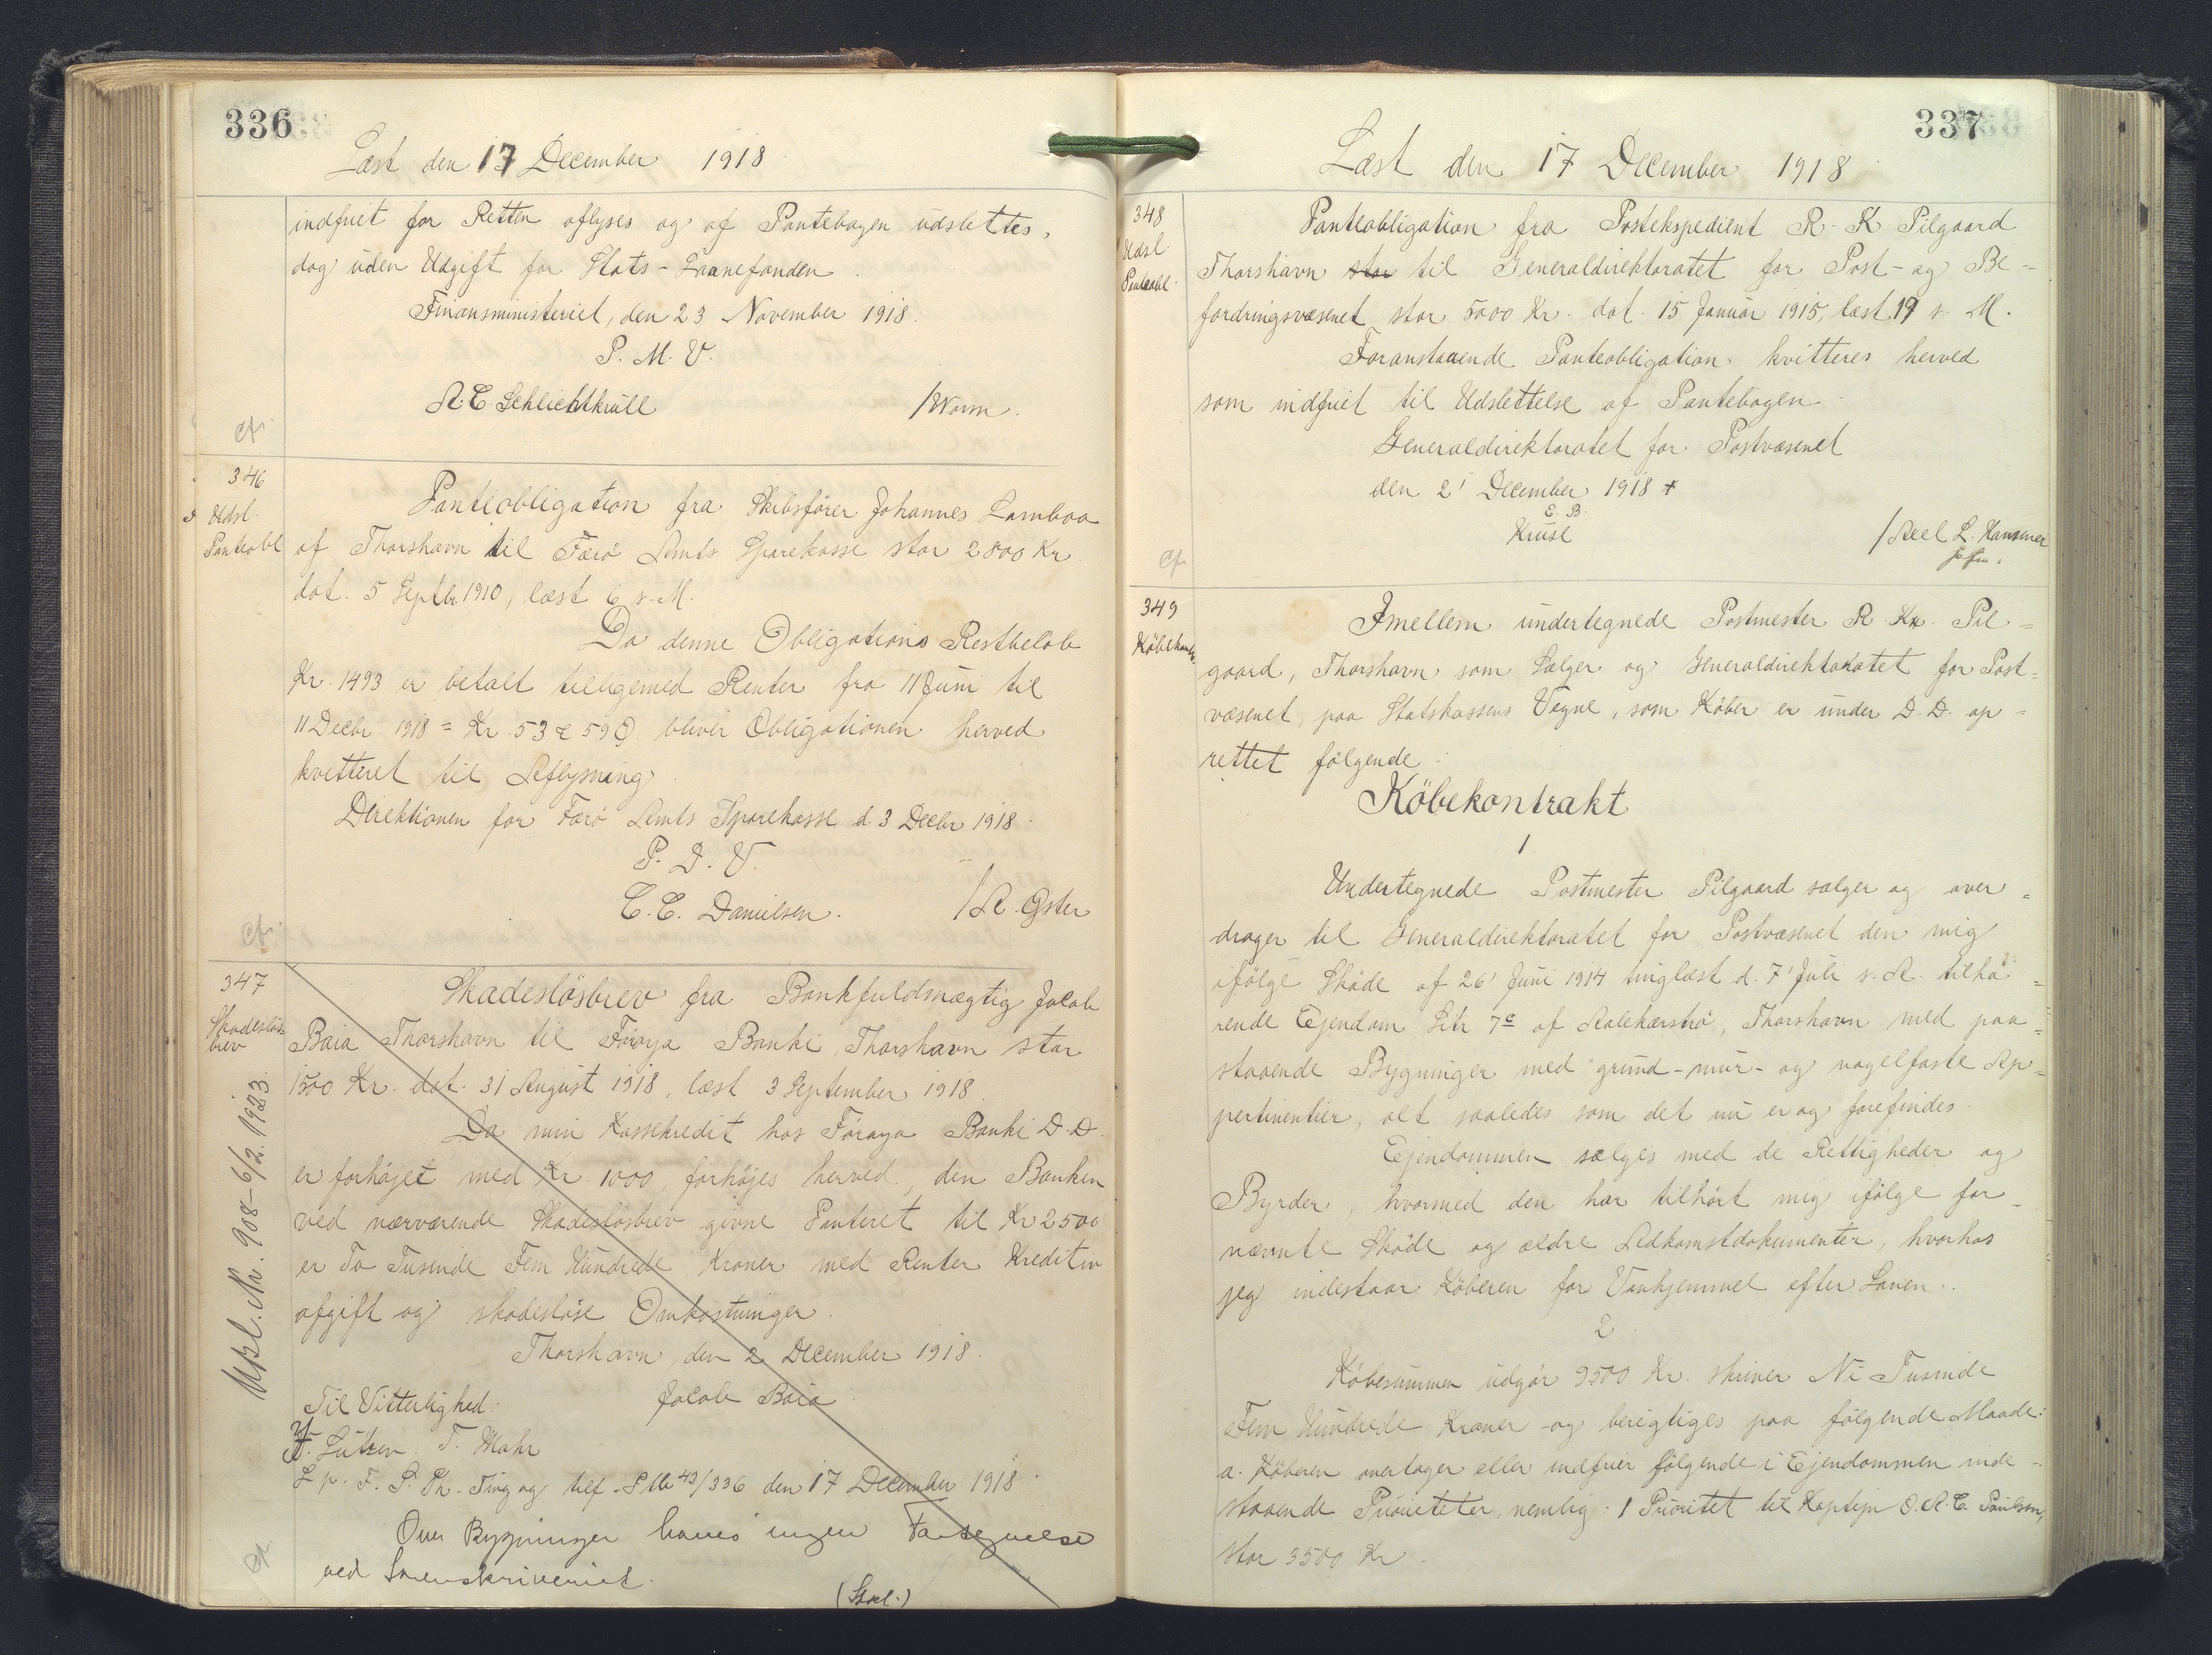 336
Læst den 17 December 1918
indfriet for Retten aflyses og af Pantebogen udslettes,
dog uden Udgift for Stats-Laanefonden.
Finansministeriet, den 23 November 1918.
P. M. V.
A. C. Schlichtkrull /Worm.
cfr.
346
Udsl.
Panteobl
Panteobligation fra Skibsfører Johannes Lamboa
af Thorshavn til Færö Amts Sparekasse stor 2800 Kr.
dat. 5 Septbr 1910, læst 6 s. M.
Da denne Obligations Restbeløb
Kr. 1493 er betalt tilligemed Renter fra 11 Juni til
11 Decbr. 1918 = Kr. 53 & 59 Ø. bliver Obligationen herved
kvitteret til Aflysning.
Direktionen for Færö Amts Sparekasse d. 3 Decbr 1918.
P. D. V.
C. C. Danielsen. /A. Øster
cfr.
347
Skadeslös
brev
Skadeslösbrev fra Bankfuldmægtig Jacob
Baia Thorshavn til Föroya Banki, Thorshavn stor
1500 Kr. dat. 31 August 1918, læst 3 September 1918.
Da min Kassekredit hos Föroya Banki D.D.
er forhöjet med Kr. 1000, forhöjes herved, den Banken
ved nærværende Skadeslösbrev givne Panteret til Kr 2500
er To Tusinde Fem Hundrede Kroner med Renter Kreditiv
afgift og skadeslöse Omkostninger.
Thorshavn, den 2 December 1918.
Til Vitterlighed: Jacob Baia
Lützen. T. Mohr
L p. F. S. Th. Ting og tilf. S 43/336 den 17 December 1918.
Over Bygninger haves ingen
ved Sorenskriveriet.
Upl. Nr. 908-6/2. 1923.
cfr.
337
Læst den 17 December 1918.
348
Udsl.
Panteobl.
Panteobligation fra Postekspedient R. K Pilgaard
Thorshavn stor til Generaldirektoratet for Post- og Be=
fordringsvæsenet stor 5000 Kr. dat. 15 Januar 1915, læst 19 s. M.
Foranstaaende Panteobligation kvitteres herved
som indfriet til Udslettelse af Pantebogen.
Generaldirektoratet for Postvæsenet
den 2' December 1918 +
E. B.
Kruse /Axel L.
cfr
349
Köbekontr.
Imellem undertegnede Postmester R. Kr. Pil=
gaard, Thorshavn som Sælger og Generaldirektoratet for Post=
væsenet, paa Statskassens Vegne, som Köber er under D. D. op=
rettet fölgende:
Köbekontrakt
1
Undertegnede Postmester Pilgaard sælger og over=
drager til Generaldirektoratet for Postvæsenet den mig
ifölge Sköde af 26' Juni 1914 tinglæst d. 7' Juli s. A. tilhö=
rende Ejendom Litr 7c af Aalekærströ, Thorshavn med paa=
staaende Bygninger med grund-mur- og nagelfaste Ap=
pertinentier, alt saaledes som det nu er og forefindes.
Ejendommen sælges med de Rettigheder og
Byrder, hvormed den har tilhört mig ifölge for=
nævnte Sköde og ældre Adkomstdokumenter, hvorhos
jeg indestaar Köberen for Vanhjemmel efter Loven.
2
Köbesummen udgör 9500 Kr. skriver Ni Tusinde
Fem Hundrede Kroner og berigtiges paa fölgende Maade:
a. Köberen overtager eller indfrier fölgende i Ejendommen inde=
staaende Prioriteter, nemlig: 1 Prioritet til Kaptejn O. A. C. Paulson,
stor 3500 Kr.